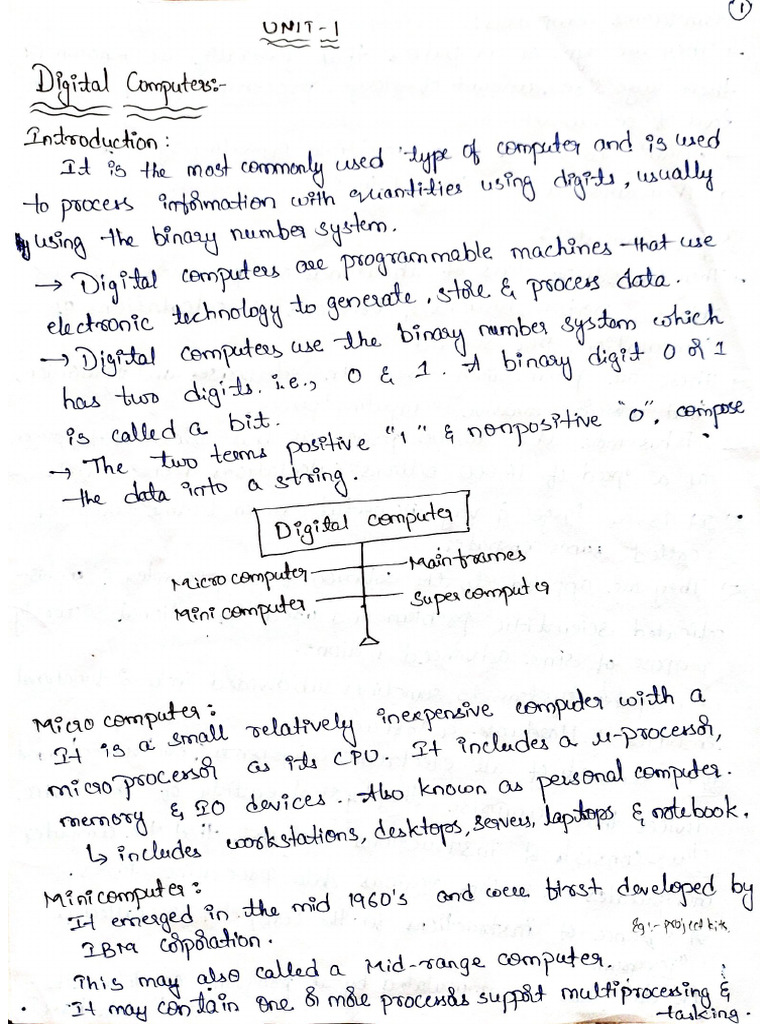 1
UNIT-1
Digital Computers:-
Introduction:
It is the most commonly used type of computer and is used
to process information with quantities using digits, usually
using the binary number system.
→ Digital computers are programmable machines that use
electronic technology to generate, store & process data.
→ Digital computers use the binary number system which
has two digits. i.e., 0 & 1. A binary digit 0 or 1
is called a bit.
→ The two terms positive "1" & nonpositive "0". compose
the data into a string.
Digital computer
Micro computer Mainframes
Mini computer Super computer
Micro computer:
It is a small relatively inexpensive computer with a
microprocessor as its CPU. It includes a u-processor,
memory & IO devices. Also known as personal computer.
↳ includes workstations, desktops, servers, laptops & notebook.
Minicomputer:
It emerged in the mid 1960's and were first developed by
IBM corporation. Eg:- project kits.
This may also called a Mid-range computer.
It may contain one or more processors support multiprocessing &
tasking.